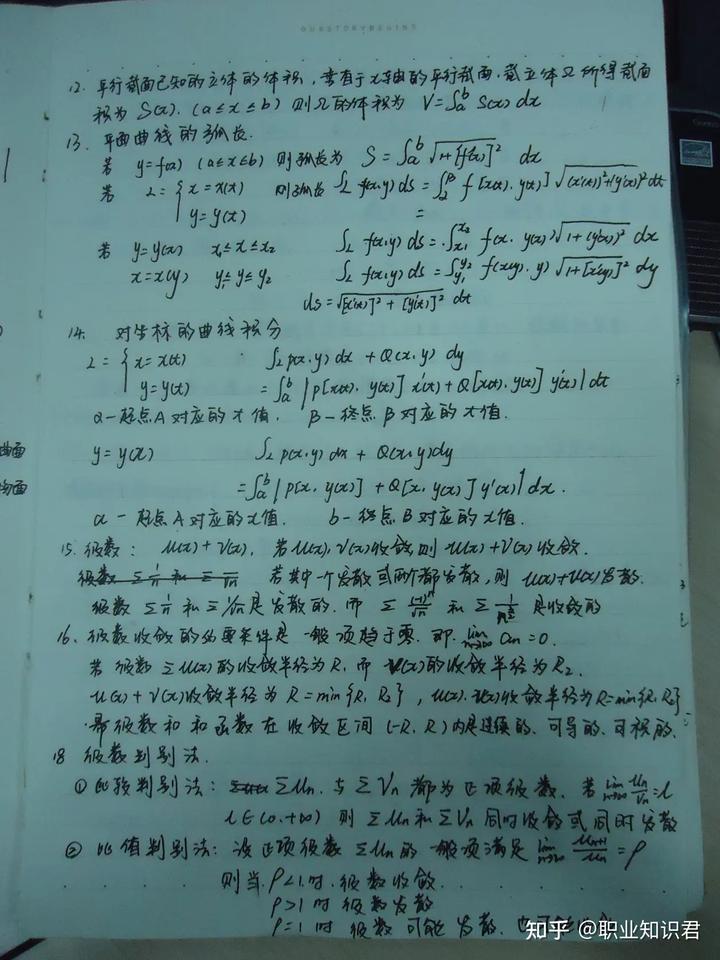 12. 平行截面已知的立体的体积,垂直于x轴的平行截面,截立体Ω所得截面
积为 S(x). (a≤x≤b) 则Ω的体积为 V=∫_a^b S(x) dx
13. 平面曲线的弧长.
若 y=f(x) (a≤x≤b) 则弧长为 S=∫_a^b √(1+[f'(x)]²) dx
若 L={x=x(t) 则弧长 ∫_L f(x,y) ds = ∫_α^β f[x(t),y(t)]√((x'(t))²+(y'(t))²) dt
y=y(t) =
若 y=y(x) x₁≤x≤x₂ ∫_L f(x,y) ds = ∫_{x₁}^{x₂} f(x,y(x))√(1+(y'(x))²) dx
x=x(y) y₁≤y≤y₂ ∫_L f(x,y) ds = ∫_{y₁}^{y₂} f(x(y),y)√(1+[x'(y)]²) dy
ds=√([x'(t)]²+[y'(t)]²) dt
14. 对坐标的曲线积分
L={x=x(t) ∫_L p(x,y) dx + Q(x,y) dy
y=y(t) =∫_a^b |p[x(t),y(t)] x'(t)+Q[x(t),y(t)] y'(t)| dt
α—起点A对应的t值. β—终点B对应的t值.
y=y(x) ∫_L p(x,y) dx + Q(x,y) dy
=∫_a^b |p[x,y(x)] + Q[x,y(x)] y'(x)| dx.
a—起点A对应的x值. b—终点B对应的x值.
15. 级数: u(x)+v(x). 若u(x),v(x)收敛,则 u(x)+v(x)收敛.
若其中一个发散或两个都发散,则 u(x)+v(x)发散.
级数 Σ1/n 和 Σ1/√n 是发散的. 而 Σ(-1)ⁿ/√n 和 Σ 是收敛的
16. 级数收敛的必要条件是一般项趋于零. 即 lim_{n→∞} aₙ=0.
若级数 Σu(x)的收敛半径为R₁ 而 v(x)的收敛半径为R₂.
u(x)+v(x)收敛半径为 R=min{R₁,R₂}, u(x)·v(x)收敛半径为R=min{R₁,R₂}
幂级数和 和函数在收敛区间(-R,R)内是连续的、可导的、可积的.
18 级数判别法.
① 比较判别法: Σuₙ 与 Σvₙ 都为正项级数. 若 lim_{n→∞} uₙ/vₙ=l
l∈(0,+∞) 则 Σuₙ和Σvₙ同时收敛或同时发散
② 比值判别法: 设正项级数 Σuₙ的一般项满足 lim_{n→∞} uₙ₊₁/uₙ=ρ
则当 ρ<1时. 级数收敛.
ρ>1时 级数发散
ρ=1时 级数可能发散. 也可能收敛
知乎 @职业知识君